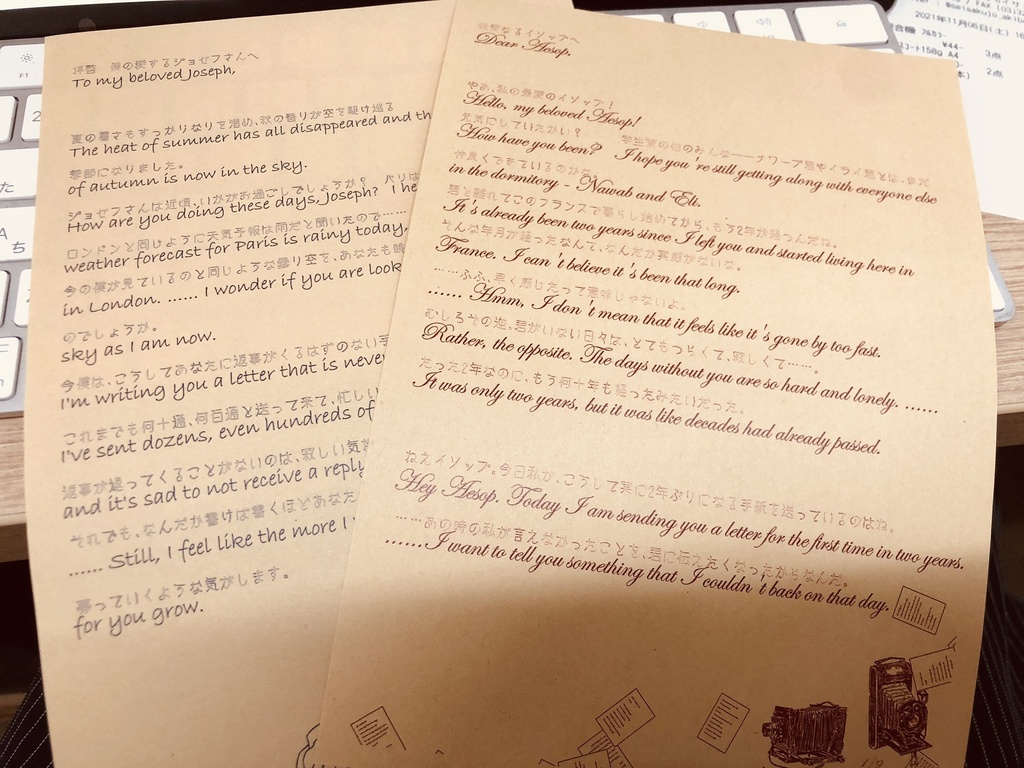 拝啓 僕の愛するジョセフさんへ
To my beloved Joseph,
夏の暑さもすっかりなりを潜め、秋の香りが空を駆け巡る
The heat of summer has all disappeared and th
季節になりました。
of autumn is now in the sky.
ジョセフさんは近頃、いかがお過ごしでしょうか? パリは
How are you doing these days, Joseph? I he
ロンドンと同じように天気予報は雨だと聞いたので……
weather forecast for Paris is rainy today,
今の僕が見ているのと同じような曇り空を、あなたも眺
in London. ...... I wonder if you are look
のでしょうか。
sky as I am now.
今僕は、こうしてあなたに返事がくるはずのない手
I'm writing you a letter that is never
これまでも何十通、何百通と送って来て、忙しい
I've sent dozens, even hundreds of
返事が返ってくることがないのは、寂しい気
and it's sad to not receive a reply
それでも、なんだか書けば書くほどあなた
...... Still, I feel like the more I
募っていくような気がします。
for you grow.
親愛なるイソップへ
Dear Aesop,
やあ、私の最愛のイソップ!
Hello, my beloved Aesop!
元気にしていたかい? 学生寮の他のみんな――ナワーブ君やイライ君とは、まだ
How have you been? I hope you're still getting along with everyone else
仲良くできているのかな。
in the dormitory - Nawab and Eli.
君と離れてこのフランスで暮らし始めてから、もう2年が経つんだね。
It's already been two years since I left you and started living here in
そんな年月が経ったなんて、なんだか実感がないな。
France. I can't believe it's been that long.
……ふふ、早く感じたって意味じゃないよ。
...... Hmm, I don't mean that it feels like it's gone by too fast.
むしろその逆。君がいない日々は、とてもつらくて、寂しくて……。
Rather, the opposite. The days without you are so hard and lonely. ......
たった2年なのに、もう何十年も経ったみたいだった。
It was only two years, but it was like decades had already passed.
ねえイソップ。今日私が、こうして実に2年ぶりになる手紙を送っているのはね。
Hey Aesop. Today I am sending you a letter for the first time in two years.
……あの時の私が言えなかったことを、君に伝えたくなったからなんだ。
.......I want to tell you something that I couldn't back on that day.
FAX (03)
2021年11月06日(土)
¥44- 3点
A4 2点
F1
2
た
A
ち